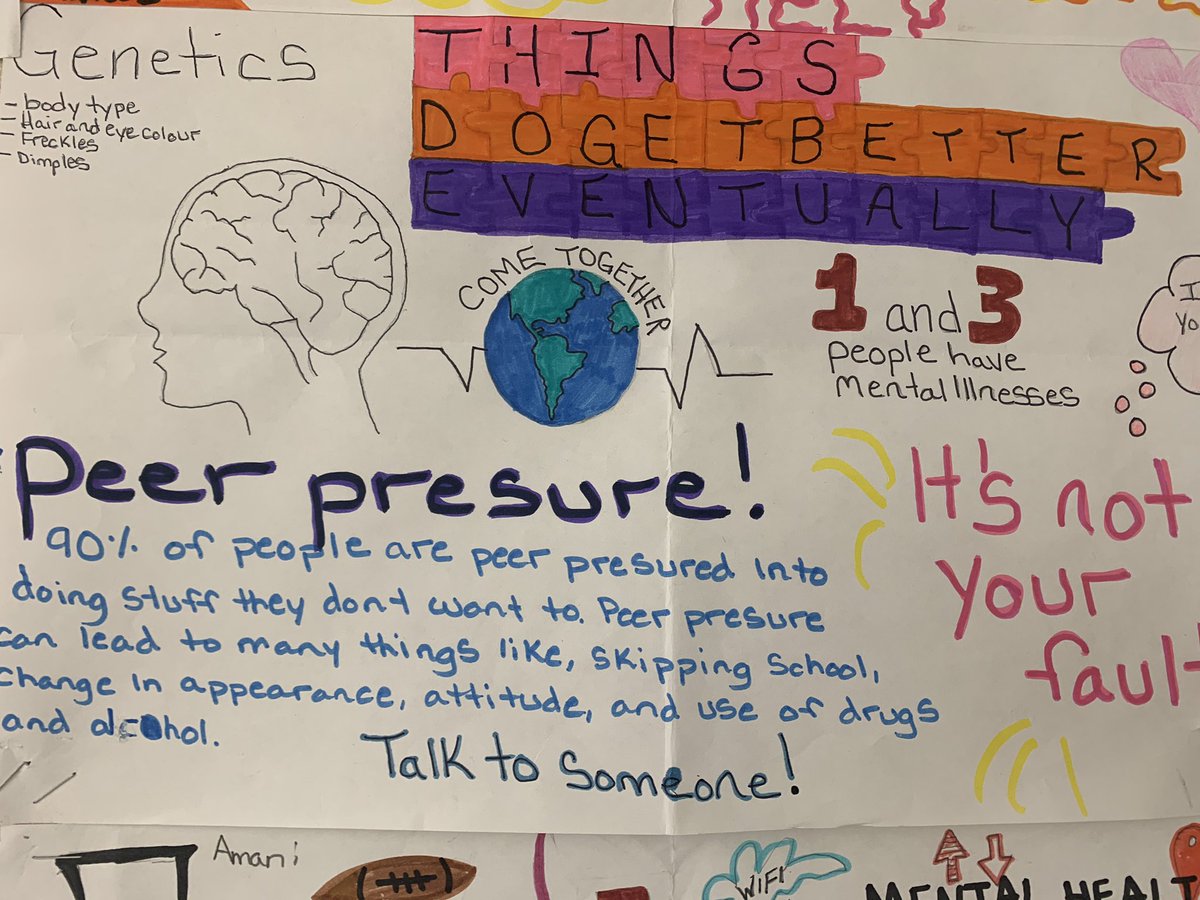 Genetics
- body type
- Hair and eye colour
- Freckles
- Dimples
THINGS
DO GET BETTER
EVENTUALLY
COME TOGETHER
1 and 3
people have
mental Illnesses
I
Yo
Peer presure!
90% of people are peer presured into
doing stuff they dont want to. Peer presure
can lead to many things like, skipping school,
change in appearance, attitude, and use of drugs
and alcohol.
It's not
your
fault
Talk to someone!
Amani
WIFI
MENTAL HEALT